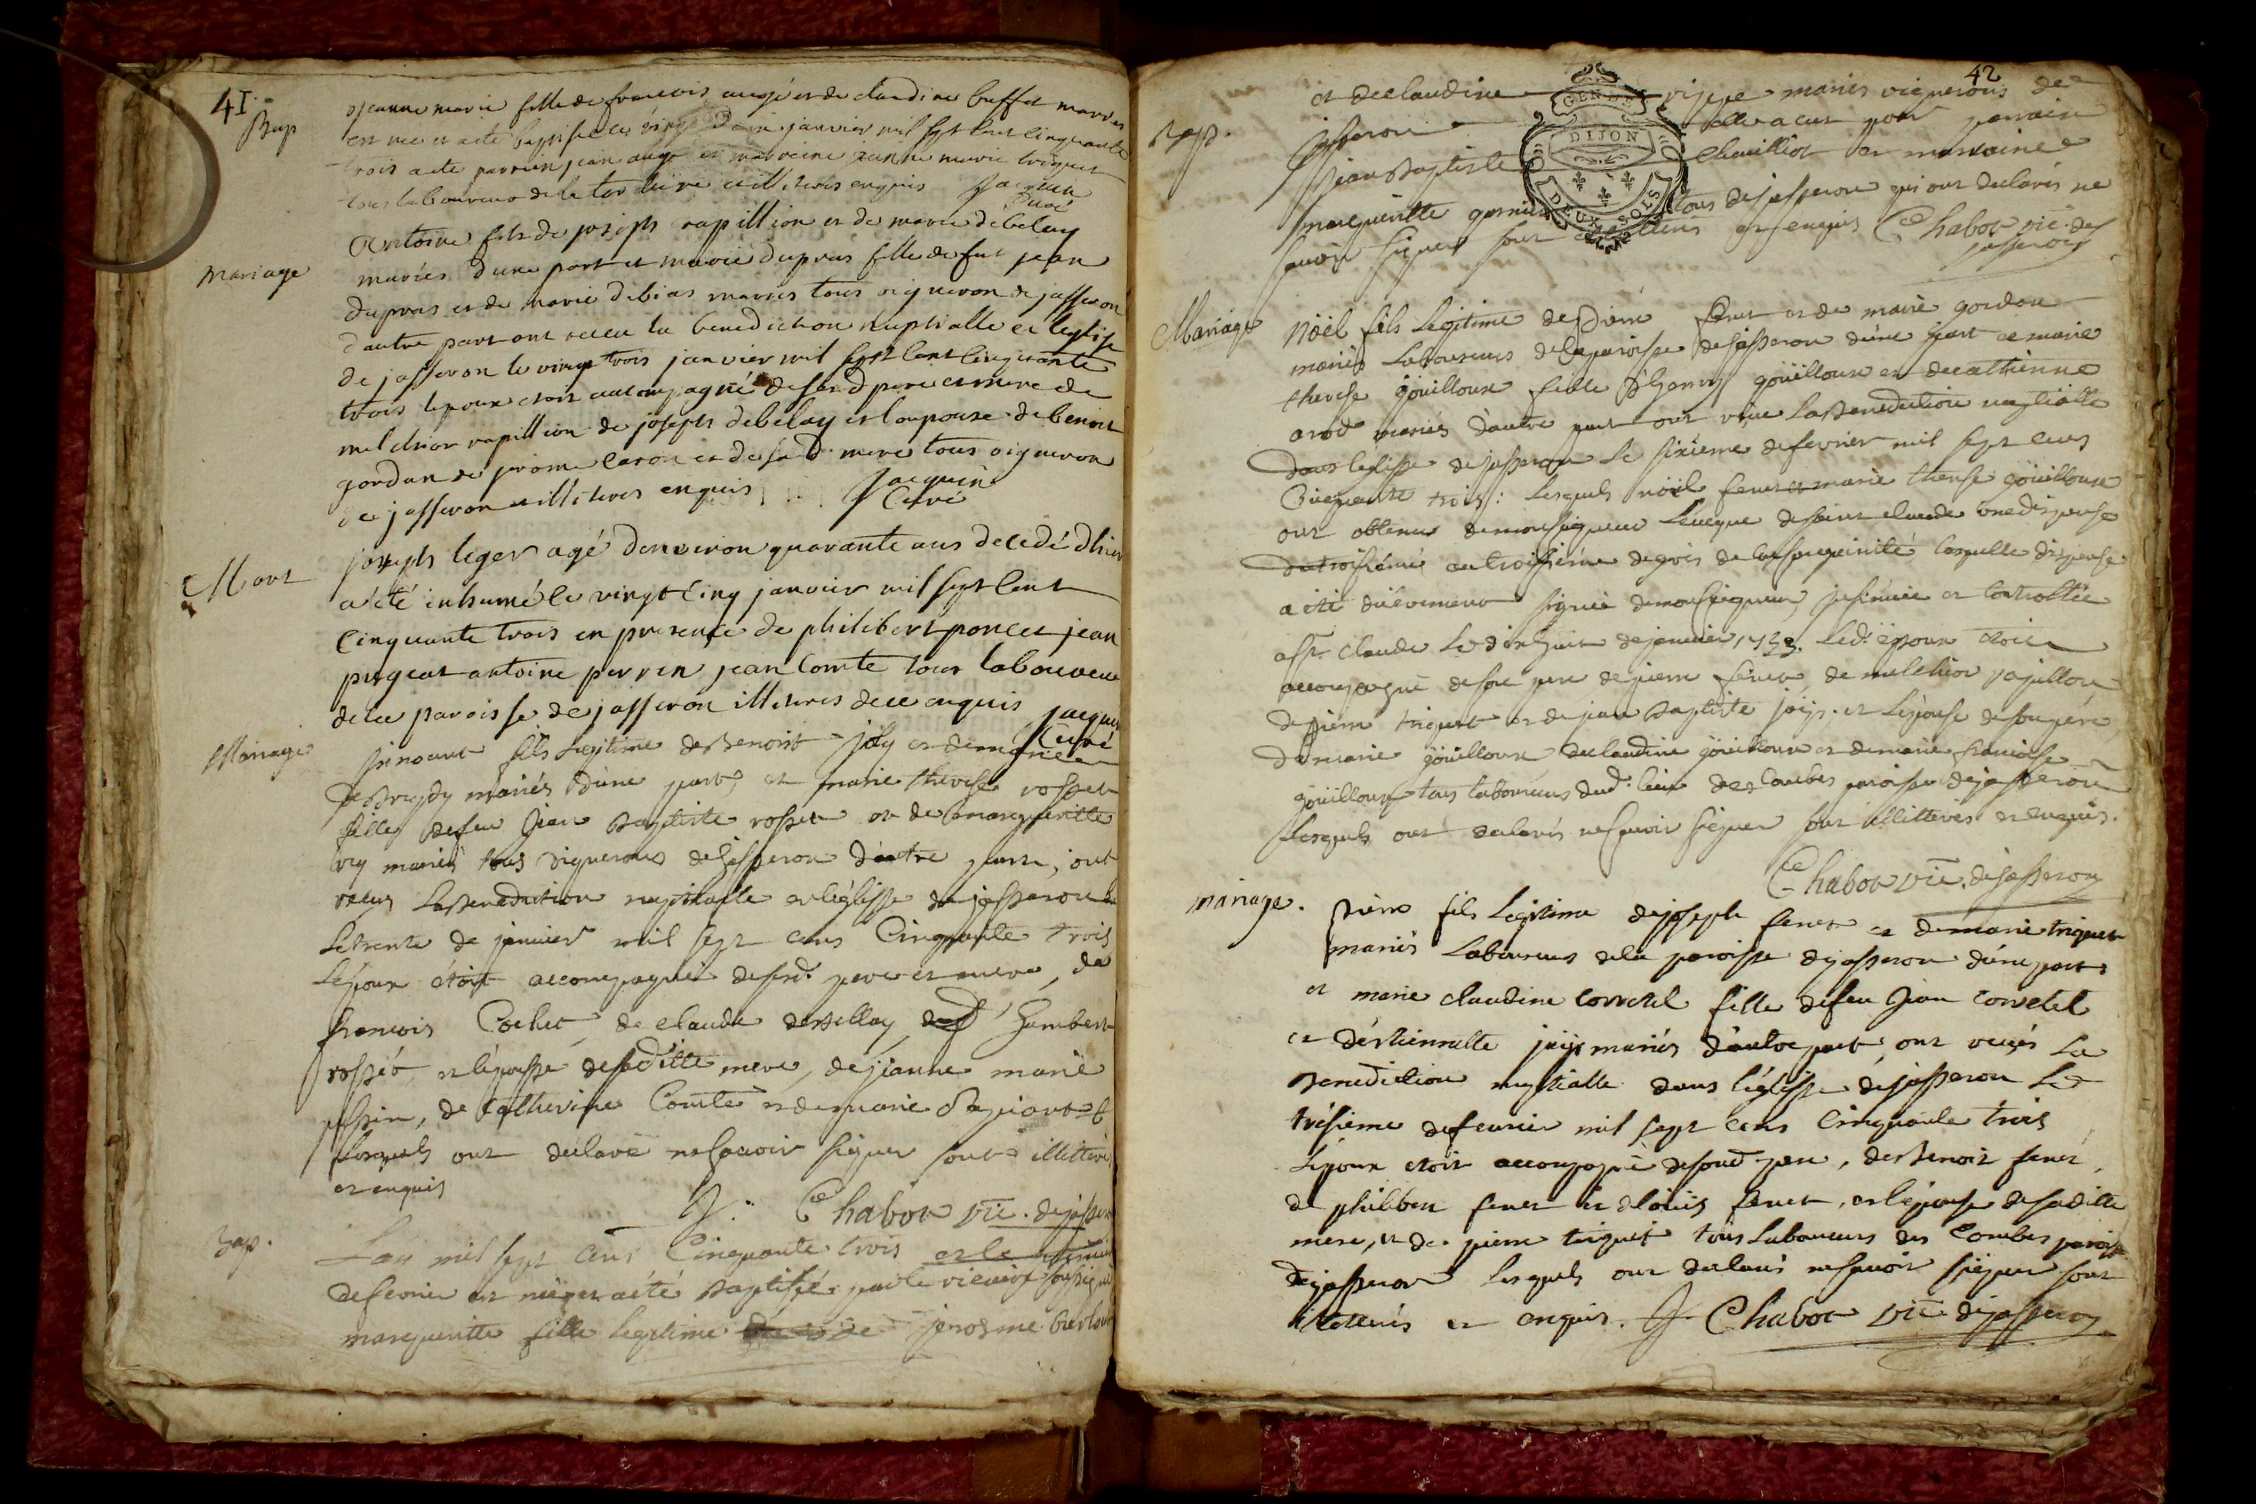 41.
Bap
jeanne marie fille de francois augé et de claudine buffet mariés
est née et a eté baptisée le vingt janvier mil sept cent cinquante
trois a eté parrain jean augé et marreine jeanne marie triquet
tous laboureurs de la illiteres enquis Jacquin
Curé
mariage
Antoine fils de joseph rapillion et de marie debelay
mariés d'une part et marie dupras fille de fut jean
dupras et de marie debias mariés tous vigneron de jasseron
d'autre part ont receu la benediction nuptialle en leglise
de jasseron le vingt trois janvier mil sept cent cinquante
trois lepoux etoit accompagné de sesd pere et mere de
melchior rapillion de joseph debelay et lepouse de benoit
gordan de jerome caron et de sad mere tous vigneron
de jasseron illiteres enquis Jacquin
Curé
Mort
joseph leger agé denviron quarante ans decedé d'hier
a été inhumé le vingt cinq janvier mil sept cent
cinquante trois en presence de philibert poncet jean
pugeat antoine perrin jean Comte tous laboureur
de la paroisse de jasseron illiteres de ce enquis Jacquin
Curé
Mariage
innocent fils legitime de Benoit joly et de marie
mariés d'une part, et marie therese rosset
fille defeu Jean Baptiste rosset et de marguerite
rey mariés tous vignerons de jasseron d'autre part, ont
recus la Benediction nuptialle en léglisse de jasseron
le trente de janvier mil sept cens Cinquante trois
lépoux étoit accompagné de sesd. pere et mere, de
francois Cochet, de claude debellay, Humbert
rosset, et lépouse de saditte mere, de jeanne marie
, de Catherine Comte et de marie
lesquels ont declaré ne scavoir signer sont illitteres
et enquis
J. Ce Chabot vic. de jasseron
Bap.
Lan mil sept cens Cinquante trois et le
de fevrier est née et a été Baptisée par le vicaire soussigné
marguerite fille legitime jerosme
42
Bap.
et de claudine mariés vignerons de
jasseron elle a eut pour parrain
Jean Baptiste Chevilliot et marraine
marguerite garnier tous de jasseron qui ont declarés ne
scavoir signer sont illiteres et enquis Ce Chabot vic. de
jasseron
GEN DE
DIJON
DEUX SOLS
Mariage
Noël fils legitime de Pierre feret et de marie gordan
mariés Laboureurs de la paroisse de jasseron d'une part et marie
therese goüilloux fille d'henry goüilloux et de cathienne
arod mariés d'autre part ont reçue la Benediction nuptialle
dans l'eglisse de jasseron le sixieme de fevrier mil sept cens
Cinquante trois: lesquels noël feret et marie therese goüilloux
ont obtenus de monseigneur leveque de saint claude une dispense
du troisieme au troisieme degrés de consanguinité laquelle dispense
a été düement signée de monseigneur, insinuée et controllée
a st. claude le dix huit de janvier 1753. led. époux étoit
accompagné de son pere de pierre feret, de melchior rapillon,
de pierre triquet et de jean Baptiste joly, et lépouse de son pére
de marie goüilloux de claudine goüilloux et de marie francoise
goüilloux tous laboureurs dud. lieu des Combes paroisse de jasseron
lesquels ont declarés ne scavoir signer sont illitteres et enquis.
Ce Chabot vic. de jasseron
mariage.
Pierre fils Legitime de joseph feret et de marie triquet
mariés Laboureurs de la paroisse de jasseron d'une part
et marie claudine Corretel fille defeu Jean Corretel
et d'éstiennette mariés d'autre part, ont reçus la
Benediction nuptialle dans l'eglisse de jasseron le
trésieme de fevrier mil sept cens Cinquante trois
lépoux etoit accompagné de soud pere, de Benoit feret,
de philibert feret et de Loüis feret, et lépouse de saditte
mere, et de pierre triquet tous laboureurs des Combes paroisse
de jasseron lesquels ont declarés ne scavoir signer sont
illitterés et enquis. J Chabot vic de jasseron